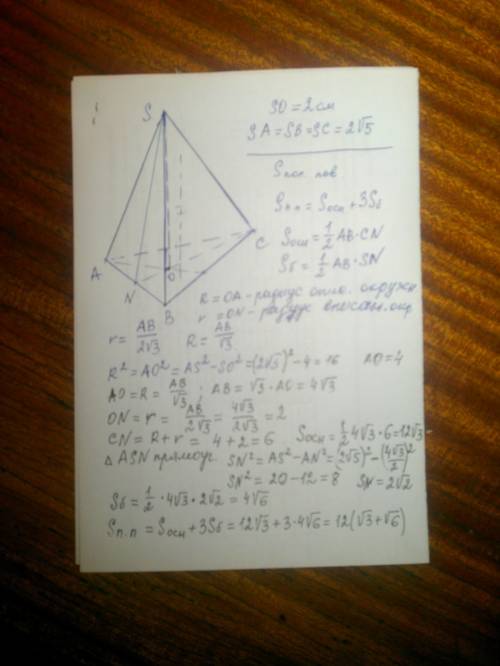 S
SO = 2 см
SA = SB = SC = 2√5
Sпол. пов.
Sп.п = Sосн + 3Sб
Sосн = 1/2 AB·CN
Sб = 1/2 AB·SN
A
N
O
B
C
R = OA - радиус опис. окружн
r = ON - радиус вписан. окр
r = AB/2√3 R = AB/√3
R² = AO² = AS² - SO² = (2√5)² - 4 = 16 AO = 4
AO = R = AB/√3 ; AB = √3 · AO = 4√3
ON = r = AB/2√3 = 4√3/2√3 = 2
CN = R + r = 4 + 2 = 6 Sосн = 1/2 4√3 · 6 = 12√3
△ ASN прямоуг. SN² = AS² - AN² = (2√5)² - (4√3/2)²
SN² = 20 - 12 = 8 SN = 2√2
Sб = 1/2 · 4√3 · 2√2 = 4√6
Sп.п = Sосн + 3Sб = 12√3 + 3·4√6 = 12(√3 + √6)